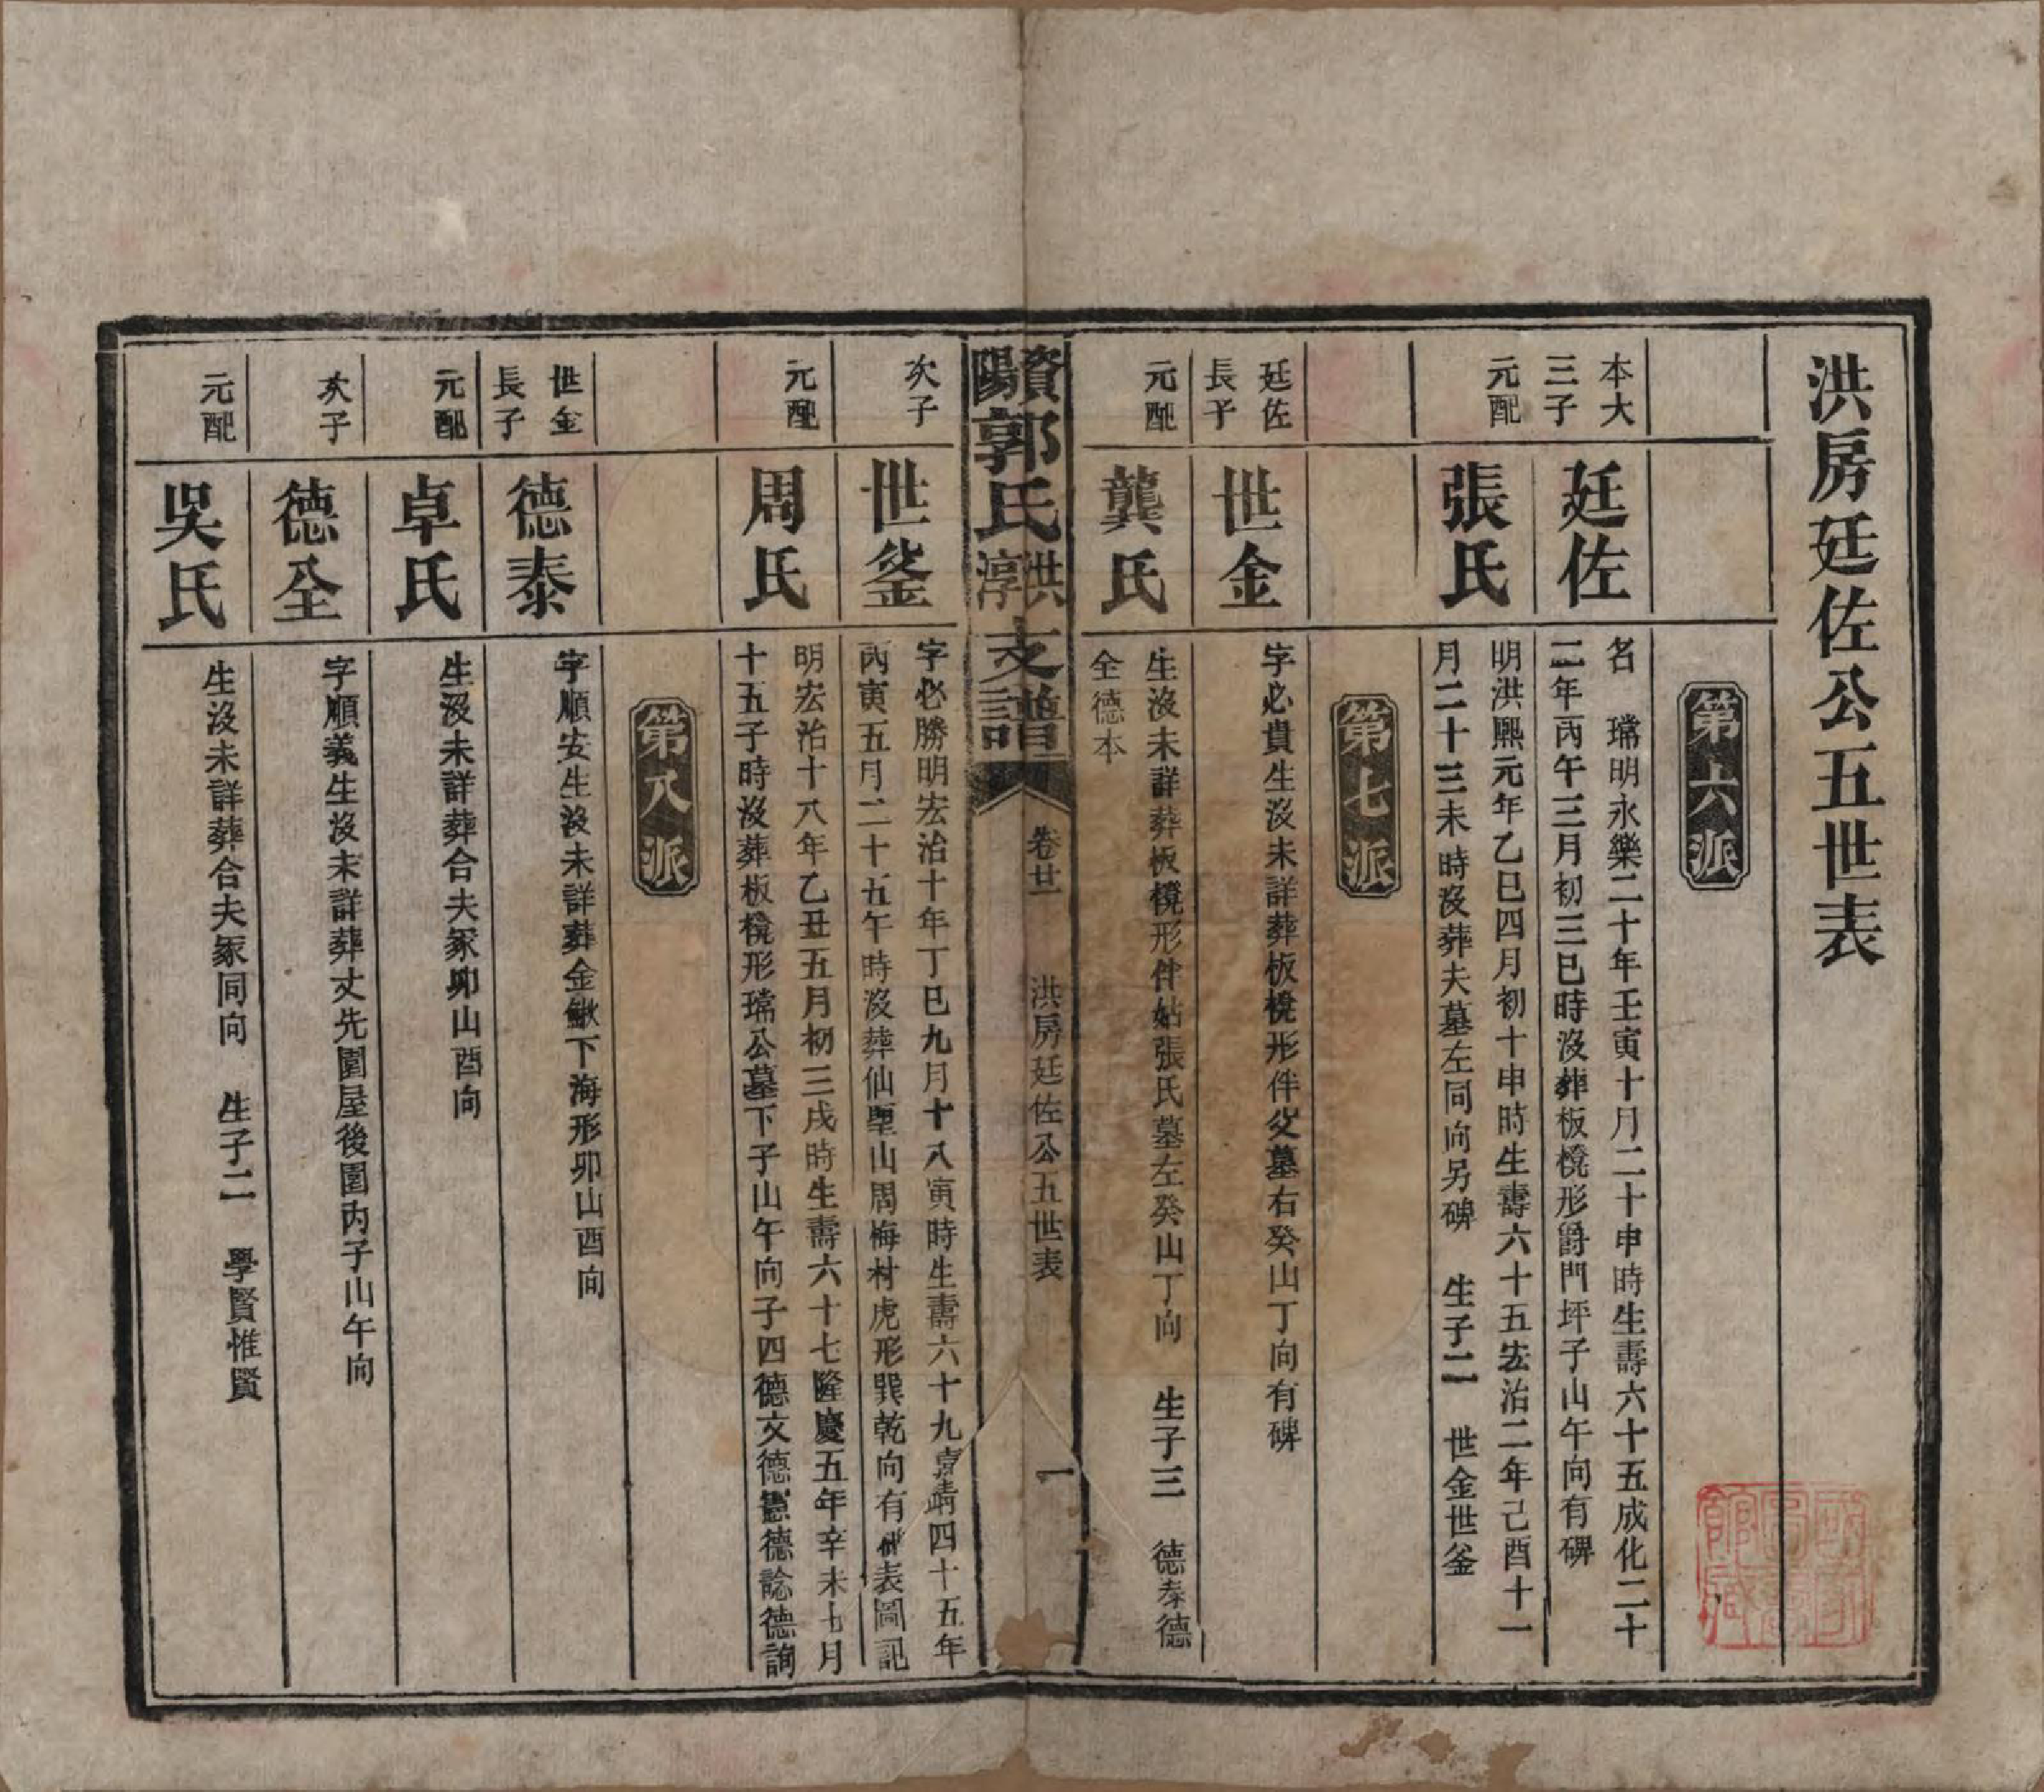 洪房廷佐公五世表
第六派
本大
三子
廷佐
名　璫明永樂二十年壬寅十月二十申時生壽六十五成化二十
二年丙午三月初三巳時沒葬板櫈形爵門坪子山午向有碑
元配
張氏
明洪熙元年乙巳四月初十申時生壽六十五宏治二年己酉十一
月二十三未時沒葬夫墓左同向另碑　生子二　世金世釜
第七派
廷佐
長子
世金
字必貴生沒未詳葬板櫈形伴父墓右癸山丁向有碑
元配
龔氏
生沒未詳葬板櫈形伴姑張氏墓左癸山丁向　生子三　德泰德
全德本
資陽郭氏洪淳支譜
卷廿一
洪房廷佐公五世表
一
次子
世釜
字必勝明宏治十年丁巳九月十八寅時生壽六十九嘉靖四十五年
丙寅五月二十五午時沒葬仙壟山周梅村虎形巽乾向有碑表圖記
元配
周氏
明宏治十八年乙丑五月初三戌時生壽六十七隆慶五年辛未七月
十五子時沒葬板櫈形璫公墓下子山午向子四德文德憲德諗德詢
第八派
世金
長子
德泰
字順安生沒未詳葬金鰍下海形卯山酉向
元配
卓氏
生沒未詳葬合夫冢卯山酉向
次子
德全
字順義生沒未詳葬丈先園屋後園內子山午向
元配
吳氏
生沒未詳葬合夫冢同向　生子二　學賢惟賢